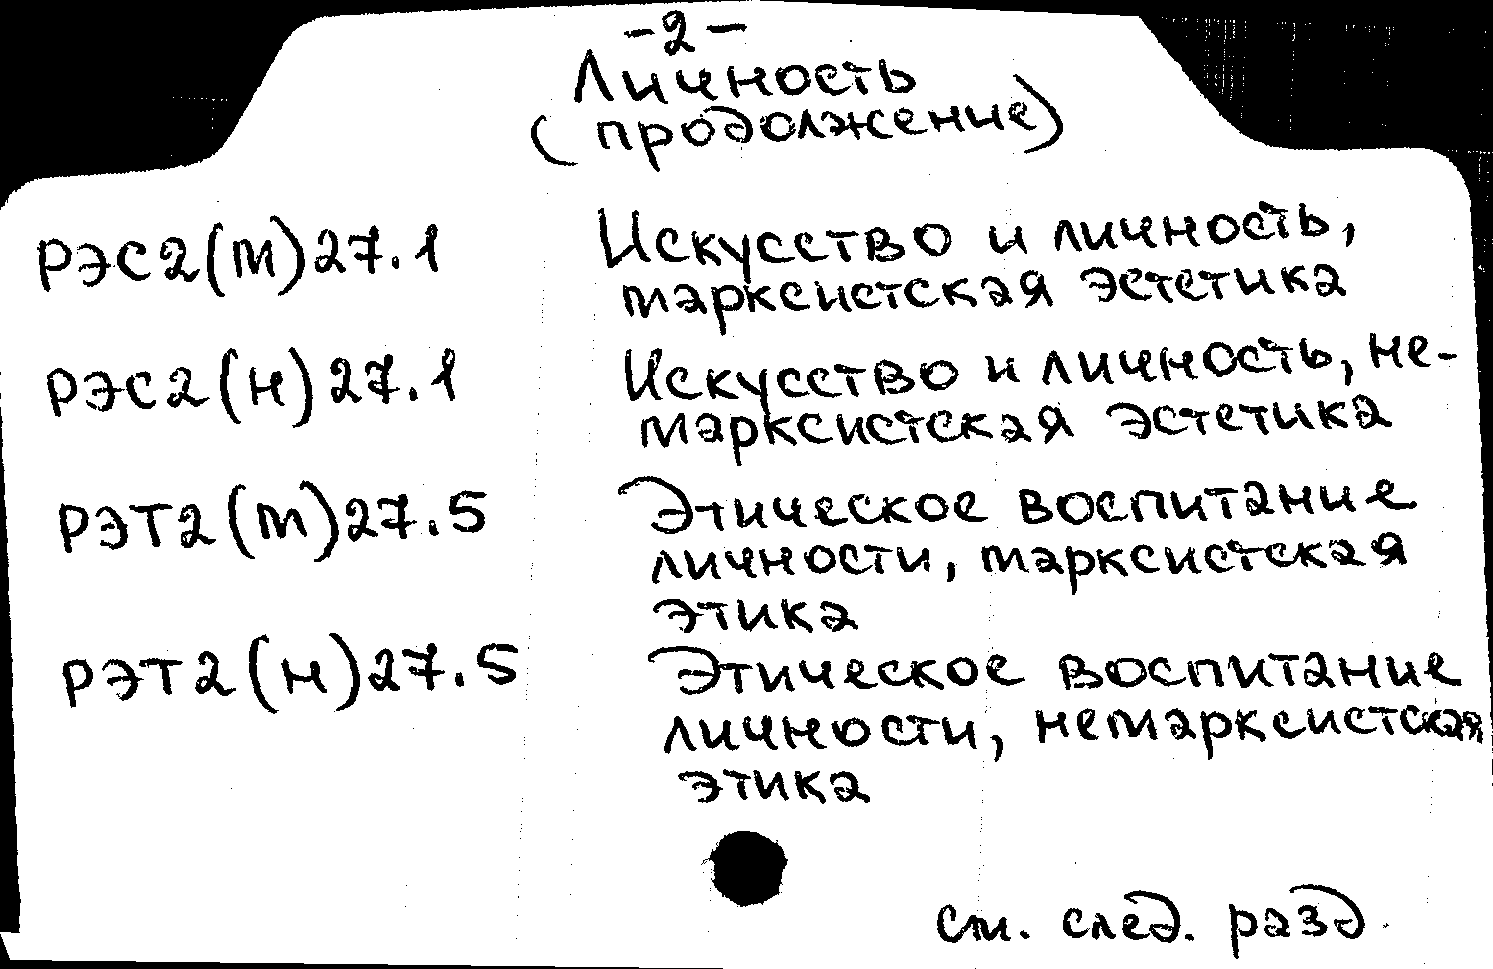 -2-
Личность
(продолжение)
РЭС2(м)27.1 Искусство и личность,
марксистская эстетика
РЭС2(н)27.1 Искусство и личность, не-
марксистская эстетика
РЭТ2(м)27.5 Этическое воспитание
личности, марксистская
этика
РЭТ2(н)27.5 Этическое воспитание
личности, немарксистская
этика
см. след. разд.